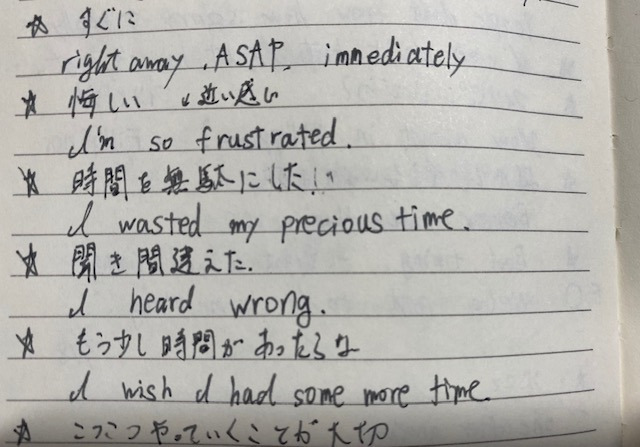 ☆ すぐに
right away , ASAP, immediately
☆ 悔しい ↓近い感じ
I'm so frustrated.
☆ 時間を無駄にした!!
I wasted my precious time.
☆ 聞き間違えた.
I heard wrong.
☆ もう少し時間があったらな
I wish I had some more time.
☆ こつこつやっていくことが大切